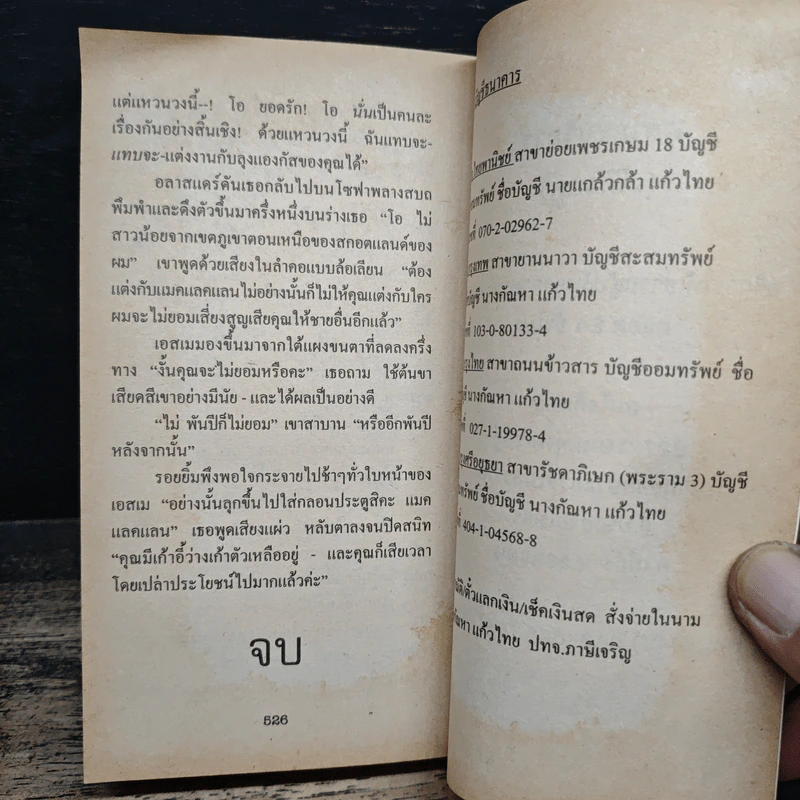 แต่แหวนวงนี้--! โอ ยอดรัก! โอ นั่นเป็นคนละ
เรื่องกันอย่างสิ้นเชิง! ด้วยแหวนวงนี้ ฉันแทบจะ-
แทบจะ-แต่งงานกับลุงแองกัสของคุณได้”
อลาสแดร์ดันเธอกลับไปบนโซฟาพลางสบถ
พึมพำและดึงตัวขึ้นมาครึ่งหนึ่งบนร่างเธอ “โอ ไม่
สาวน้อยจากเขตภูเขาตอนเหนือของสกอตแลนด์ของ
ผม” เขาพูดด้วยเสียงในลำคอแบบล้อเลียน “ต้อง
แต่งกับแมคแลคแลนไม่อย่างนั้นก็ไม่ให้คุณแต่งกับใคร
ผมจะไม่ยอมเสี่ยงสูญเสียคุณให้ชายอื่นอีกแล้ว”
เอสเมมองขึ้นมาจากใต้แผงขนตาที่ลดลงครึ่ง
ทาง “งั้นคุณจะไม่ยอมหรือคะ” เธอถาม ใช้ต้นขา
เสียดสีเขาอย่างมีนัย - และได้ผลเป็นอย่างดี
“ไม่ พันปีก็ไม่ยอม” เขาสาบาน “หรืออีกพันปี
หลังจากนั้น”
รอยยิ้มพึงพอใจกระจายไปช้าๆทั่วใบหน้าของ
เอสเม “อย่างนั้นลุกขึ้นไปใส่กลอนประตูสิคะ แมค
แลคแลน” เธอพูดเสียงแผ่ว หลับตาลงจนปิดสนิท
“คุณมีเก้าอี้ว่างเก้าตัวเหลืออยู่ - และคุณก็เสียเวลา
โดยเปล่าประโยชน์ไปมากแล้วค่ะ”
จบ
526
ธนาคาร
ไทยพานิชย์ สาขาย่อยเพชรเกษม 18 บัญชี
ทรัพย์ ชื่อบัญชี นายแกล้วกล้า แก้วไทย
ที่ 070-2-02962-7
กรุงเทพ สาขายานนาวา บัญชีสะสมทรัพย์
บัญชี นางกัณหา แก้วไทย
ที่ 103-0-80133-4
กรุงไทย สาขาถนนข้าวสาร บัญชีออมทรัพย์ ชื่อ
นางกัณหา แก้วไทย
ที่ 027-1-19978-4
ศรีอยุธยา สาขารัชดาภิเษก (พระราม 3) บัญชี
ทรัพย์ ชื่อบัญชี นางกัณหา แก้วไทย
ที่ 404-1-04568-8
ตั๋วแลกเงิน/เช็คเงินสด สั่งจ่ายในนาม
แก้วไทย ปทจ.ภาษีเจริญ